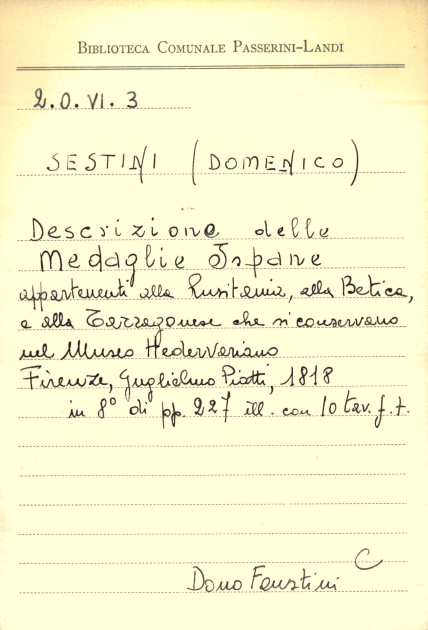 BIBLIOTECA COMUNALE PASSERINI-LANDI
2.O.VI.3
SESTINI (DOMENICO)
Descrizione delle
Medaglie Ispane
appartenenti alla Lusitania, alla Betica,
e alla Tarragonese che si conservano
nel Museo Hedervariano
Firenze, Guglielmo Piatti, 1818
in 8° di pp. 227 ill. con 10 tav. f.t.
C
Dono Faustini